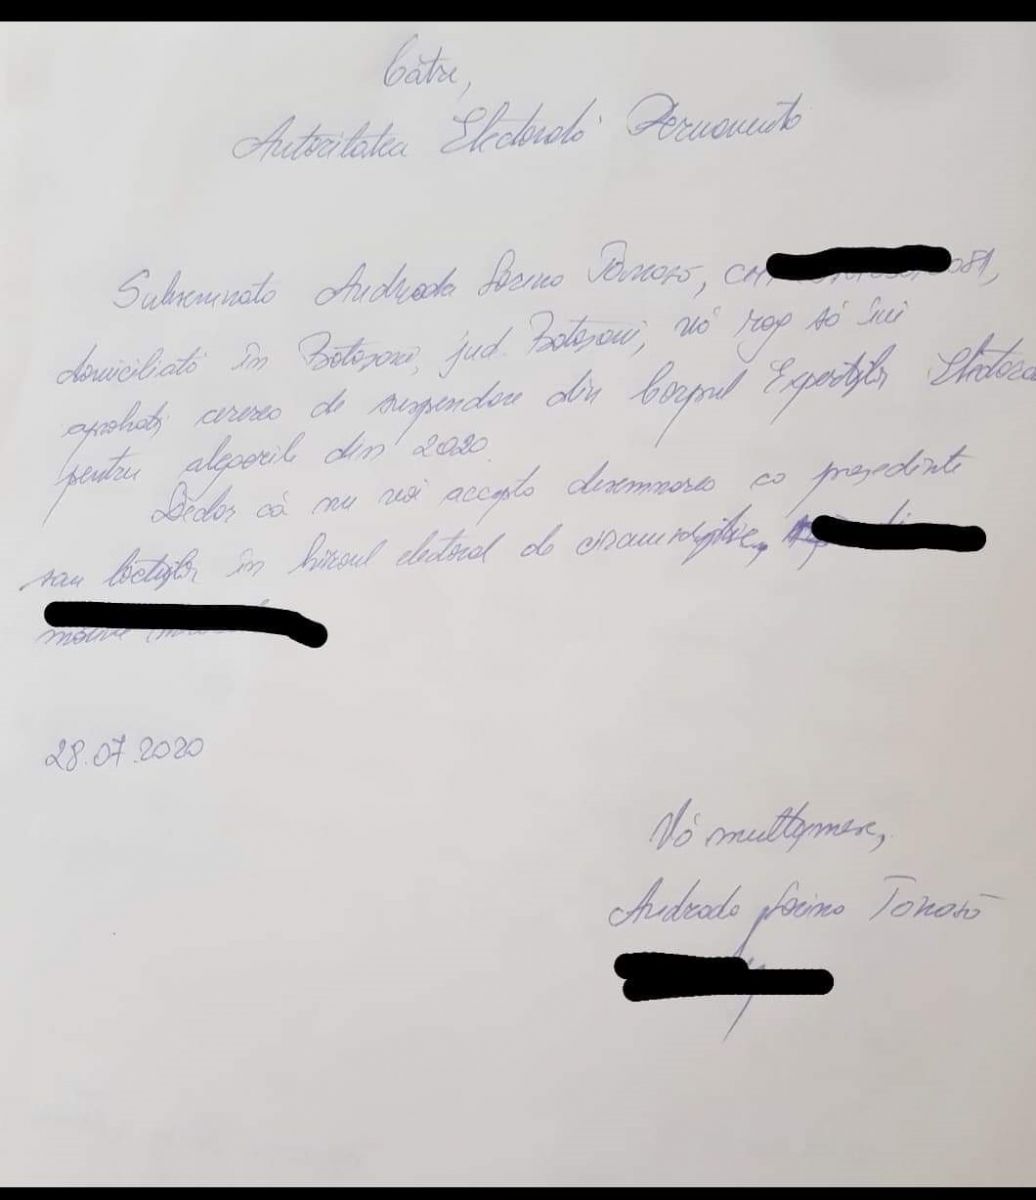 Către,
Autoritatea Electorală Permanentă
Subsemnata Andrada Sorina Tanasă,
domiciliată în Botoșani, jud. Botoșani, vă rog să îmi
aprobați cererea de suspendare din Corpul Experților
pentru alegerile din 2020.
Declar că nu voi accepta desemnarea ca președinte
sau locțiitor în biroul electoral de circumscripție,
28.07.2020
Vă mulțumesc,
Andrada Sorina Tanasă